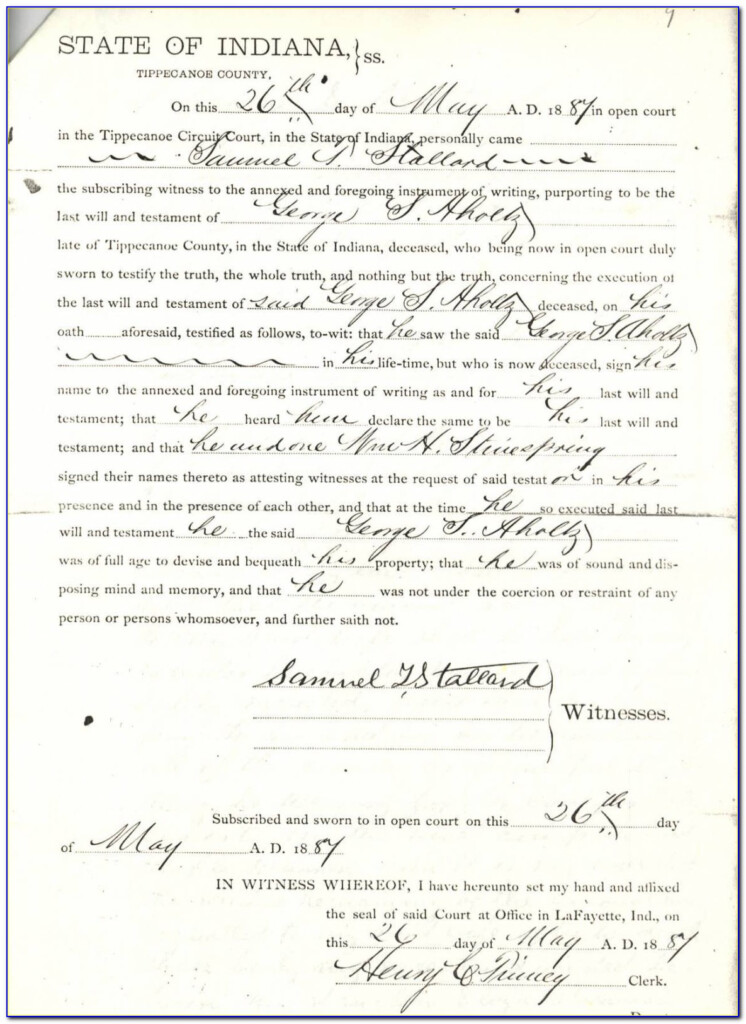 9
STATE OF INDIANA, } SS.
TIPPECANOE COUNTY,
On this 26th day of May A. D. 1887 in open court
in the Tippecanoe Circuit Court, in the State of Indiana, personally came
Samuel T. Stallard
the subscribing witness to the annexed and foregoing instrument of writing, purporting to be the
last will and testament of George S. Aholtz
late of Tippecanoe County, in the State of Indiana, deceased, who being now in open court duly
sworn to testify the truth, the whole truth, and nothing but the truth, concerning the execution of
the last will and testament of said George S. Aholtz deceased, on his
oath aforesaid, testified as follows, to-wit: that he saw the said George S. Aholtz
in his life-time, but who is now deceased, sign his
name to the annexed and foregoing instrument of writing as and for his last will and
testament; that he heard him declare the same to be his last will and
testament; and that he and one Wm H. Stinespring
signed their names thereto as attesting witnesses at the request of said testator in his
presence and in the presence of each other, and that at the time he so executed said last
will and testament he the said George S. Aholtz
was of full age to devise and bequeath his property; that he was of sound and dis-
posing mind and memory, and that he was not under the coercion or restraint of any
person or persons whomsoever, and further saith not.
Samuel T Stallard
Witnesses.
Subscribed and sworn to in open court on this 26th day
of May A. D. 1887
IN WITNESS WHEREOF, I have hereunto set my hand and affixed
the seal of said Court at Office in LaFayette, Ind., on
this 26 day of May A. D. 1887
Henry C Pinney Clerk.